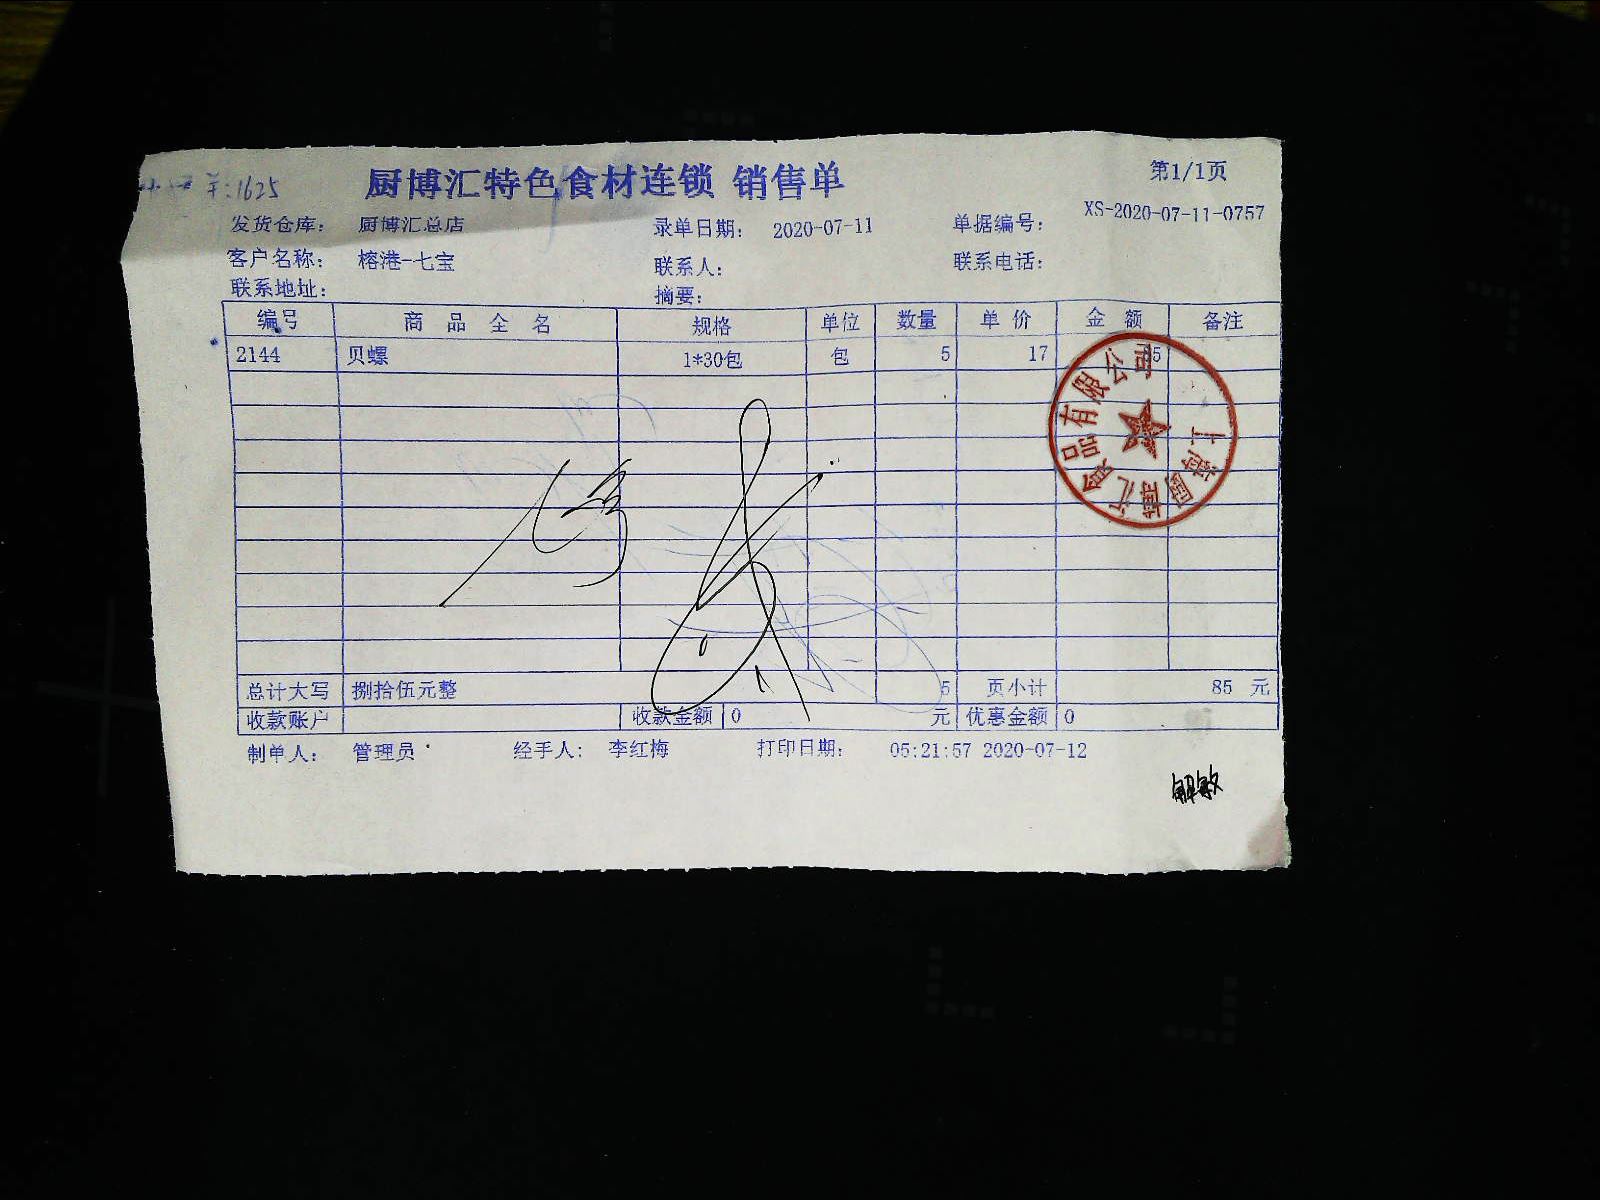 :1625
厨博汇特色食材连锁 销售单
第1/1页
发货仓库： 厨博汇总店 录单日期： 2020-07-11 单据编号： XS-2020-07-11-0757
客户名称： 榕港-七宝 联系人： 联系电话：
联系地址： 摘要：
编号 商品全名 规格 单位 数量 单价 金额 备注
2144 贝螺 1*30包 包 5 17 85
上海厨博汇食品有限公司
总计大写 捌拾伍元整 5 页小计 85 元
收款账户 收款金额 0 元 优惠金额 0
制单人： 管理员 经手人： 李红梅 打印日期： 05:21:57 2020-07-12
解敏